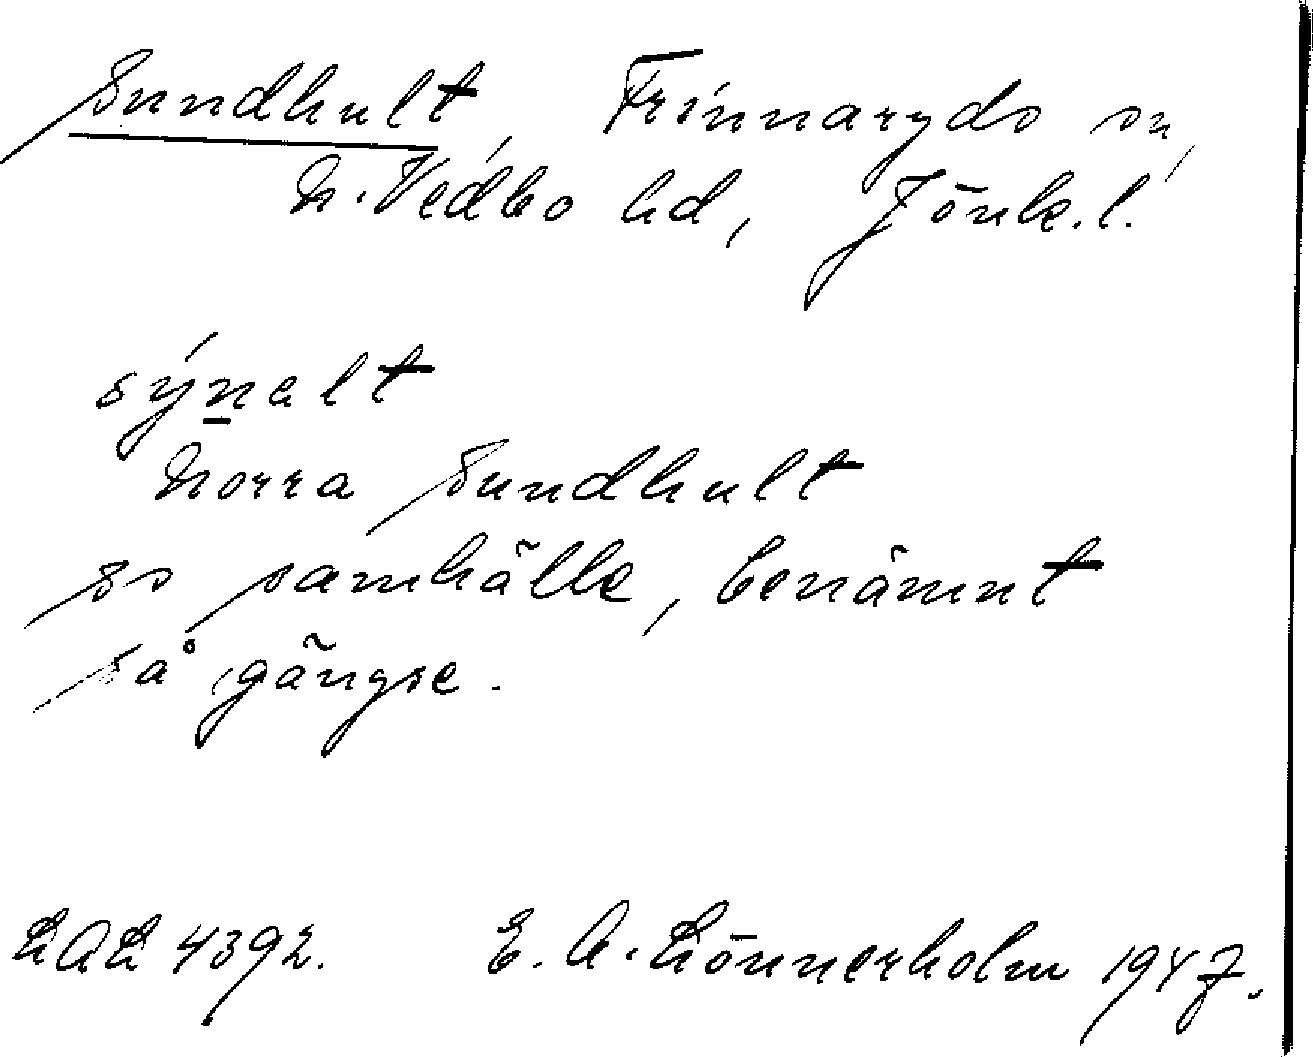 Sundhult, Frinnaryds sn,
N. Vedbo hd, Jönk. l.
sýnalt
Norra Sundhult
ss samhälle, benämnt
så gängse.
LAL 4392. E. A. Lönnerholm 1947.